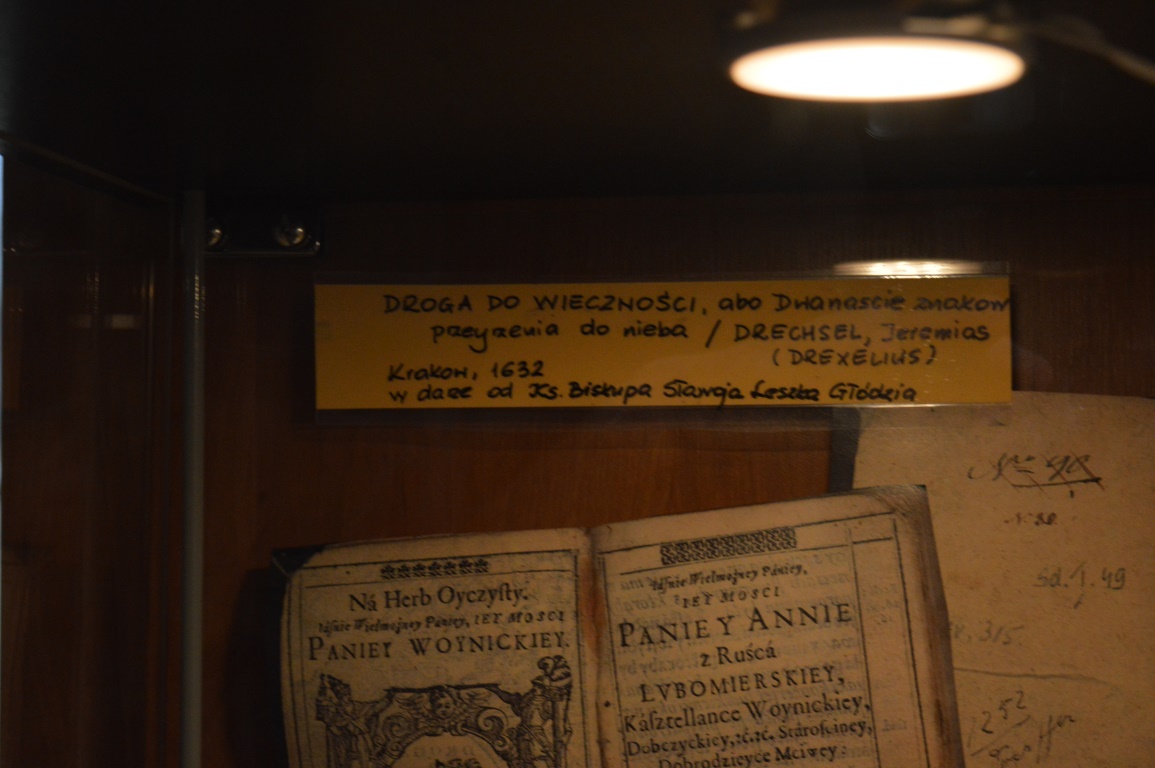 DROGA DO WIECZNOŚCI, abo Dwanascie znakow
przeyrzenia do nieba / DRECHSEL, Jeremias
(DREXELIUS)
Krakow, 1632
w darze od Ks. Biskupa Sławoja Leszka Głódzia
Ná Herb Oyczysty.
Iáśnie Wielmożney Pániey, IEY MOSCI
PANIEY WOYNICKIEY.
Iáśnie Wielmożney Pániey,
IEY MOSCI
PANIEY ANNIE
z Ruścá
LVBOMIERSKIEY,
Kásztellance Woynickiey,
Dobczyckiey, &c. &c. Stárościney,
Dobrodzieyce Mciwey:
Sd. J. 49
315.